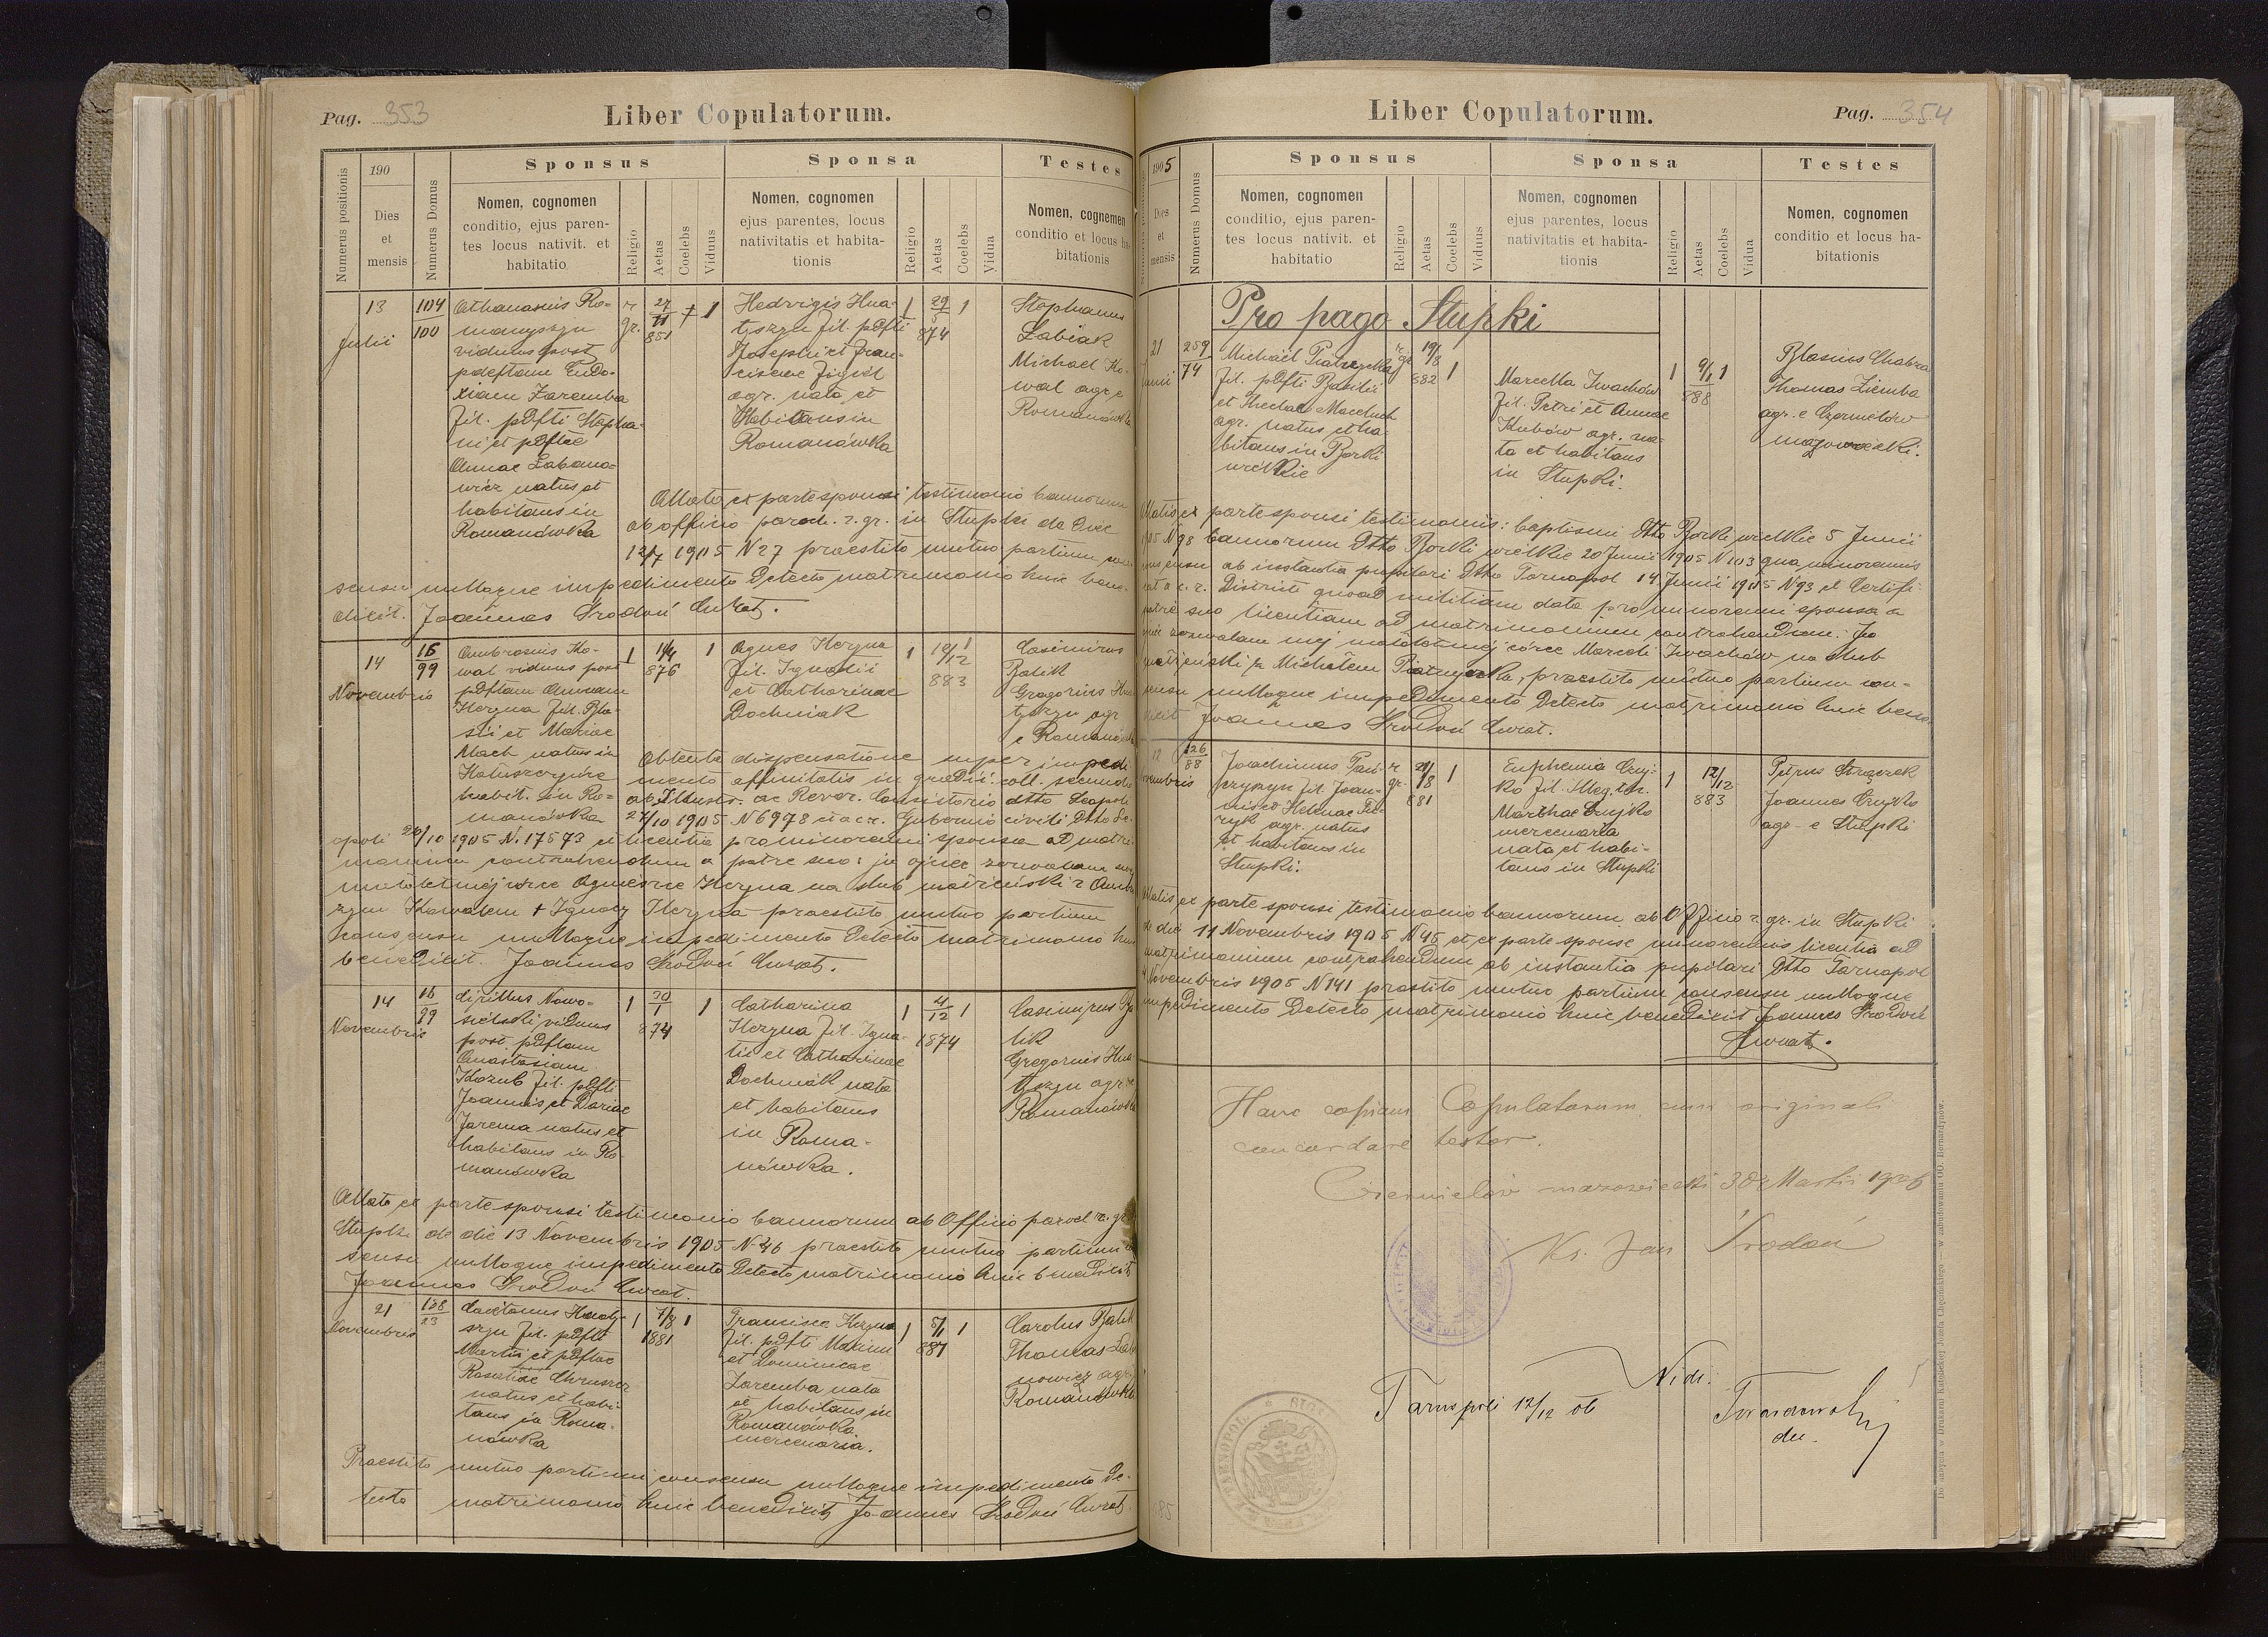 Pag. 353
Liber Copulatorum.
Numerus positionis
190
Dies
et
mensis
Numerus Domus
Sponsus
Nomen, cognomen
conditio, ejus paren-
tes locus nativit. et
habitatio
Religio
Aetas
Coelebs
Viduus
Sponsa
Nomen, cognomen
ejus parentes, locus
nativitatis et habita-
tionis
Religio
Aetas
Coelebs
Vidua
Testes
Nomen, cognemen
conditio et locus ha-
bitationis
13
Julii
104
100
Athanasius Ro-
manyszyn
viduus post
pdeftam Eudo-
xiam Zaremba
fil. pdfti Stepha-
ni et pdftae
Annae Labano-
wicz natus et
habitans in
Romanówka
r.
gr.
27
11
851
1
Hedvigis Hna-
tyszyn fil. pdfti
Josephi et Fran-
ciscae Figiel
agr. nata et
Habitans in
Romanówka
1
29
874
1
Stephanus
Labiak
Michael Ko-
wal agr. e
Romanówka
Allato ex parte sponsi testimonio bannorum
ab officio paroch. r. gr. in Stupki de die
12/7 1905 N 27 praestito mutuo partium con-
sensu nulloque impedimento detecto matrimonio huic bene-
dixit. Joannes Srodoń Curat.
14
Novembris
16
99
Ambrosius Ko-
wal viduus post
pdftam Annam
Heryna fil. Bla-
sii et Mariae
Mach natus in
habit. in Ro-
manówka
1
876
1
Agnes Heryna
fil. Ignatii
et Catharinae
Dochniak
1
10/12
883
1
Casimirus
Balik
Gregorius Hna-
tyszyn agr.
e Romanówka
Obtenta dispensatione super impedi
mento affinitatis in gradu: coll. secundo
ab Illustr. ac Rever. Consistorio dtto Leopoli
27/10 1905 N 6978 et a c.r. Gubernio civili dtto Le-
opoli 20/10 1905 N. 17573 et licentia pro minorenni sponsa ad matri-
monium contrahendum a patre suo: ja ojciec zezwalam mej
małoletniej córce Agnieszce Heryna na ślub małżeński z Ambro
zym Kowalem + Ignacy Heryna praestito mutuo partium
consensu nulloque impedimento detecto matrimonio huic
benedixit. Joannes Srodoń Curat.
14
Novembris
16
99
Cirillus Nowo-
sielski viduus
post. pdftam
Anastasiam
Kozub fil. pdfti
Joannis et Dariae
Jarema natus et
habitans in Ro-
manówka
1
20
1
874
1
Catharina
Heryna fil. Igna-
tii et Catharinae
Dochniak nata
et habitans
in Roma-
nówka.
1
4
12
1874
1
Casimirus Ba
lik
Gregorius Hna
tyszyn agr. e
Romanówka
Allato ex parte sponsi testimonio bannorum ab Officio paroch r. gr.
Stupki de die 13 Novembris 1905 N 46 praestito mutuo partium con
sensu nulloque impedimento detecto matrimonio huic benedixit
Joannes Srodoń Curat.
21
Novembris
128
23
Caietanus Hnaty-
szyn fil. pdfti
Martii et pdftae
Rosaliae Chruszcz
natus et habi-
tans in Roma-
nówka
1
7/8
1881
1
Francisca Heryna
fil. pdfti Maximi
et Dominicae
Zaremba nata
et habitans in
Romanówka
mercenaria.
1
5/1
887
1
Carolus Balik
Thomas Laba
nowicz agr.
Romanówka
Praestito mutuo partium consensu nulloque impedimento de-
tecto matrimonio huic benedixit Joannes Srodoń Curat.
Liber Copulatorum.
Pag. 354
1905
Dies
et
mensis
Numerus Domus
Sponsus
Nomen, cognomen
conditio, ejus paren-
tes locus nativit. et
habitatio
Religio
Aetas
Coelebs
Viduus
Sponsa
Nomen, cognomen
ejus parentes, locus
nativitatis et habita-
tionis
Religio
Aetas
Coelebs
Vidua
Testes
Nomen, cognomen
conditio et locus ha-
bitationis
Pro pago Stupki
21
Junii
259
74
Michael Piatnyczka
fil. pdfti Basilii
et Theclae Maceluch
agr. natus et ha-
bitans in Borki
wielkie
r.
gr.
19/8
882
1
Marcella Iwachów
fil. Petri et Annae
Kubów agr. na-
ta et habitans
in Stupki.
1
9/1
888
1
Blasius Chabra
Thomas Ziemba
agr. e Czernielów
mazowiecki.
Allatis ex parte sponsi testimoniis: baptismi dtto Borki wielkie 5 Junii
905 N 98 bannorum dtto Borki wielkie 20 Junii 1905 N 103 qua minorennis
consensu ab instantia pupilari dtto Tarnopol 14 Junii 1905 N 93 et Certifi-
cat a c. r. Districti quoad militiam data pro minorenni sponsa a
patre suo licentiam ad matrimonium contrahendum: Ja
ojciec zezwalam mej małoletniej córce Marceli Iwachów na ślub
małżeński z Michałem Piatnyczka, praestito mutuo partium con-
sensu nulloque impedimento detecto matrimonio huic bene
dixit Joannes Srodoń Curat.
12
Novembris
126
88
Joachimus Pań-
fil. Joan-
nis et Helenae
agr. natus
et habitans in
Stupki.
r.
gr.
18
881
1
Euphemia Czuj-
ko fil. illeg. th.
Marthae Czujko
mercenaria
nata et habi-
tans in Stupki
1
12/12
883
1
Petrus Strączek
Joannes Czujko
agr. e Stupki
Allatis ex parte sponsi testimonio bannorum ab Officio r. gr. in Stupki
de die 11 Novembris 1905 N 45 et ex parte sponse minorennis licentia ad
matrimonium contrahendum ab instantia pupilari dtto Tarnopol
Novembris 1905 N 141 praestito mutuo partium consensu nulloque
impedimento detecto matrimonio huic benedixit Joannes Srodoń
Curat.
Hanc copiam Copulatorum cum originali
concordare testor.
Czernielów mazowiecki 30 Martii 1906
Ks. Jan Środoń
Vidi.
Tarnopoli 12/12 06
Twardowski
dec.
Do nabycia w Drukarni Katolickiej Józefa Chęcińskiego w zabudowaniu OO. Bernardynów.